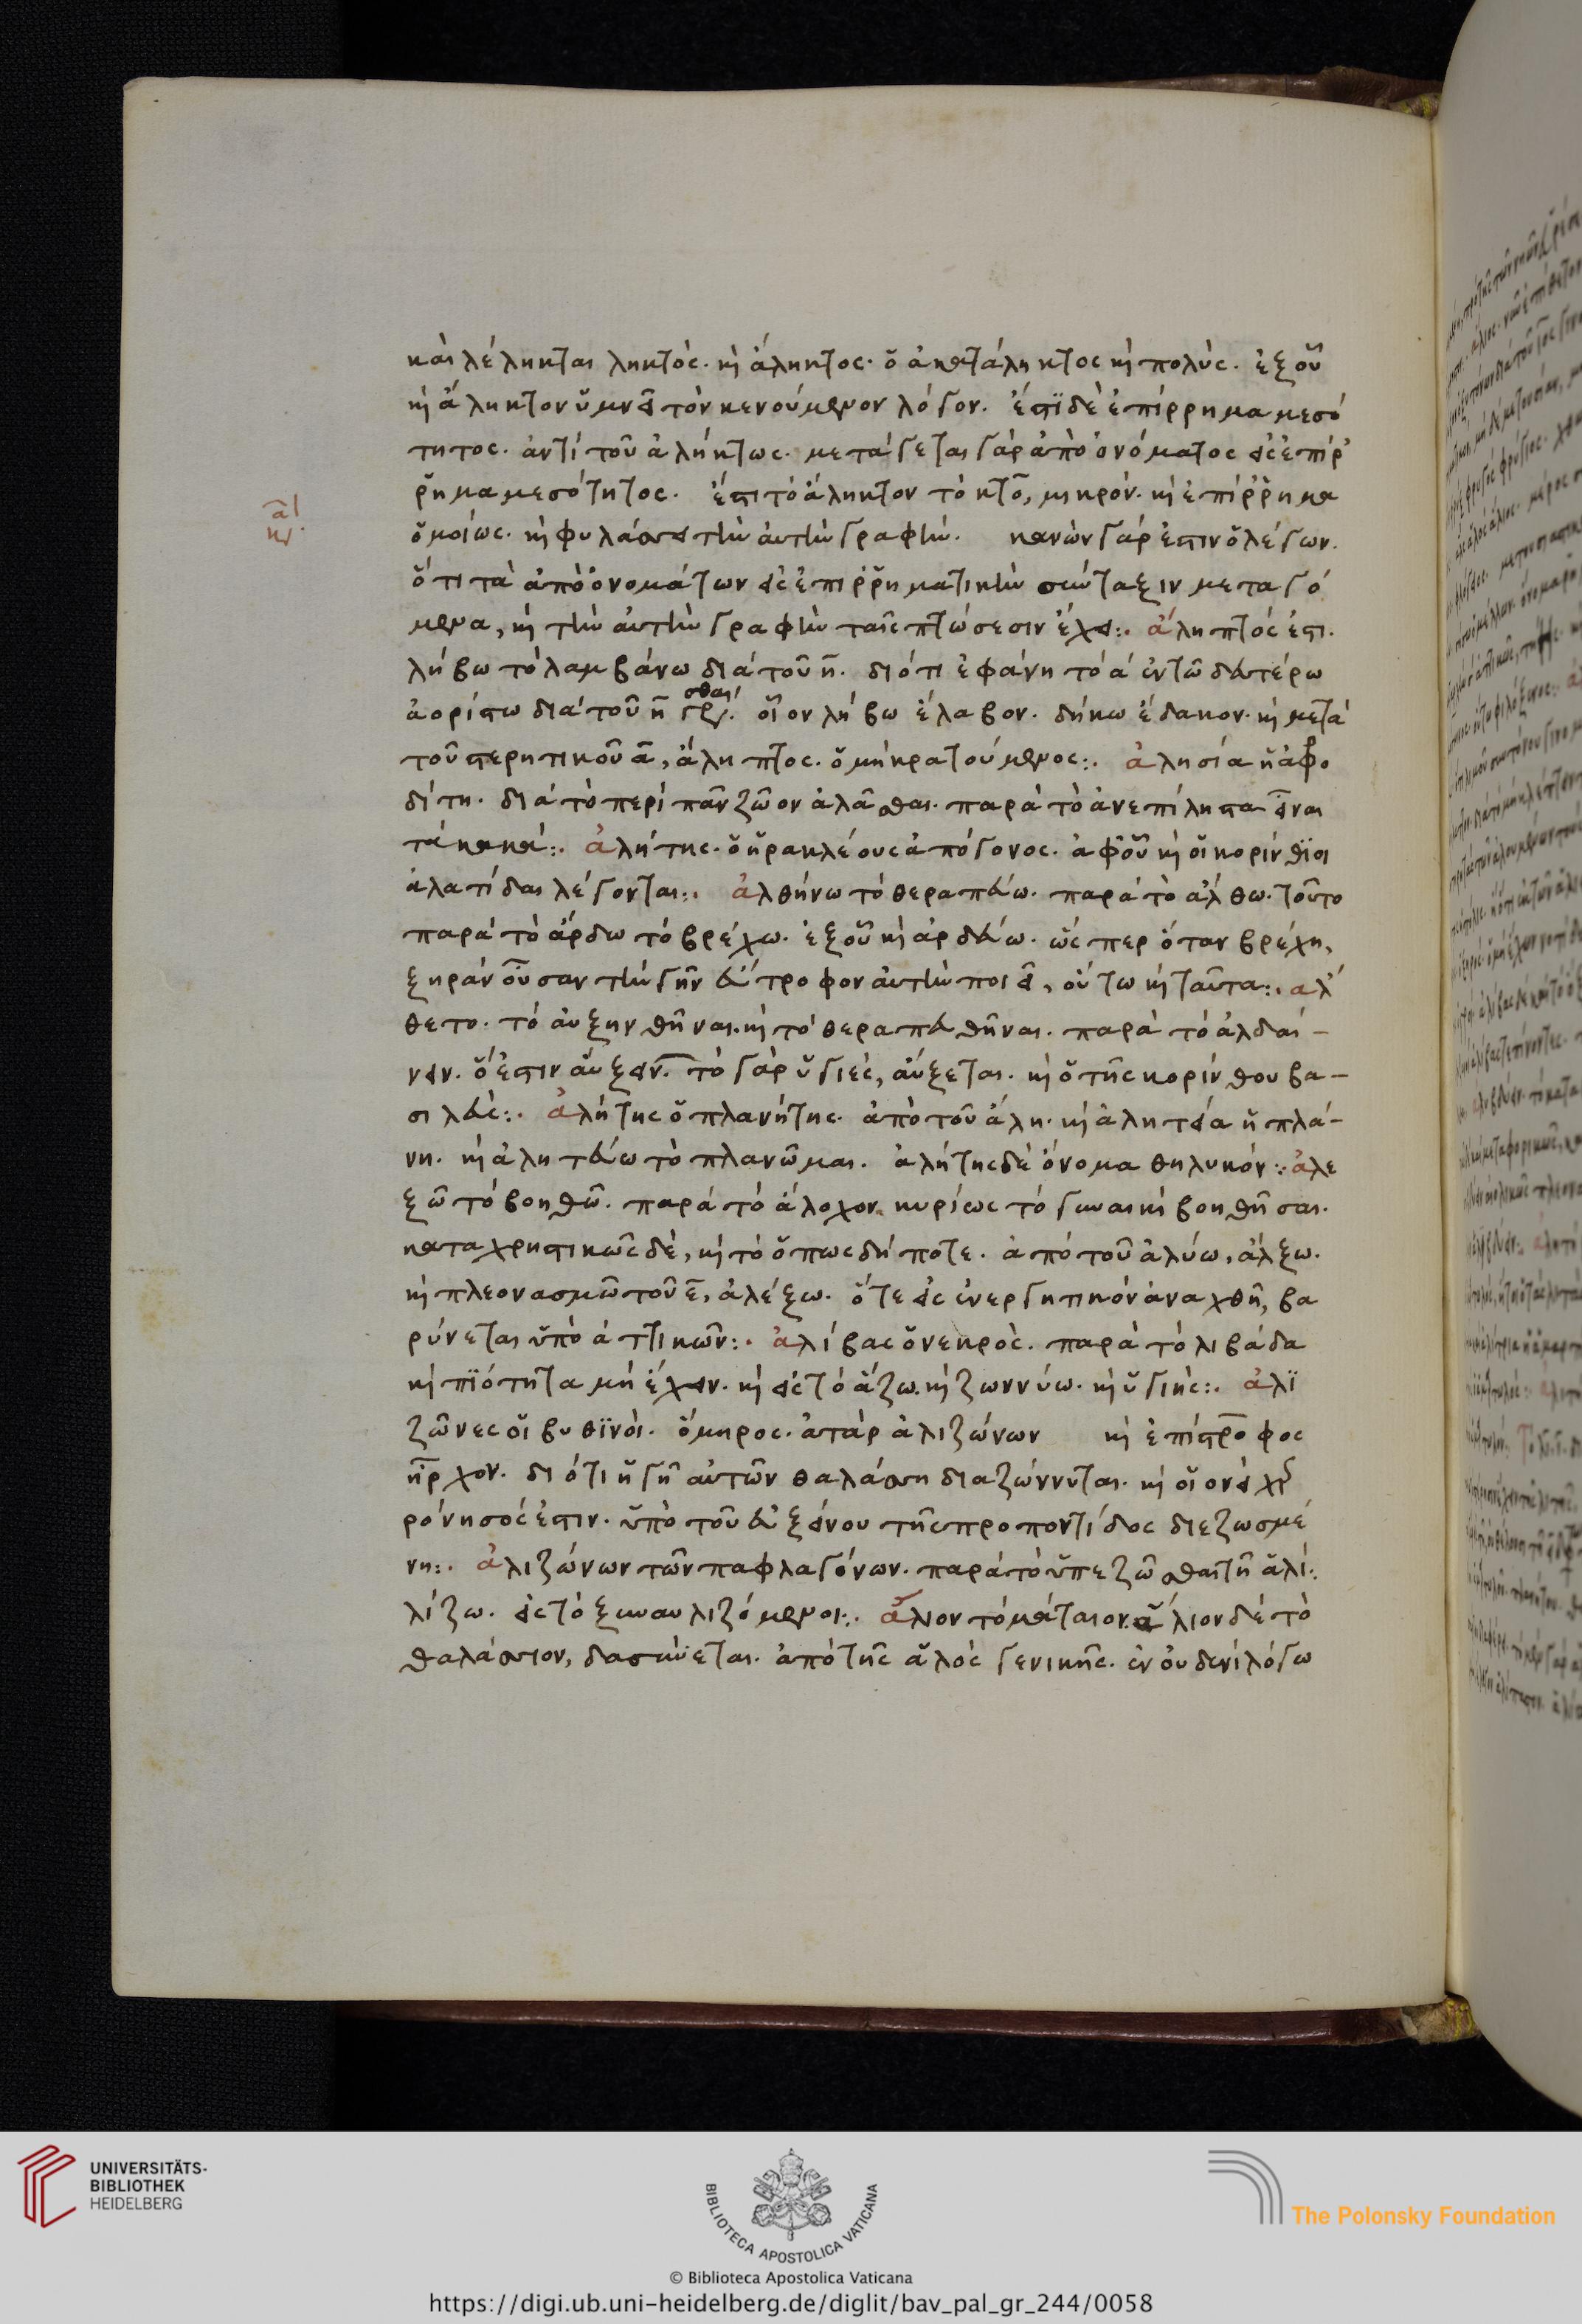 καὶ λέληκται ληκτὸς· κὴ ἄληκτος· ὁ ἀκατάληκτος κὴ πολύς. ἐξ οὗ
κὴ ἄληκτον ὑμνεῖ τὸν κενούμενον λόγον. ἔστϊ δὲ ἐπίρρημα μεσό
τητος. ἀντὶ τοῦ ἀλήκτως. μετάγεται γὰρ ἀπὸ ὀνόματος εἰς ἐπίρ
ρημα μεσότητος. ἔστι τὸ ἄληκτον τὸ κτο, μικρόν. κὴ ἐπίρρημα
ὁμοίως. κὴ φυλάσσει τὴν αὐτὴν γραφήν. κανὼν γάρ ἐστιν ὁ λέγων.
ὅτι τὰ ἀπὸ ὀνομάτων εἰς ἐπιρρηματικὴν σύνταξιν μεταγό
μενα, κὴ τὴν αὐτὴν γραφὴν ταῖς πτώσεσιν ἔχει:. ἄληπτός ἐστι.
λήβω τὸ λαμβάνω διὰ τοῦ η. διότι ἐφάνη τὸ α ἐν τῶ δευτέρω
ἀορίστω διὰ τοῦ η γρ. σθαι οἷον λήβω ἔλαβον. δήκω ἔδακον. κὴ μετὰ
τοῦ στερητικοῦ α, ἄληπτος. ὁ μὴ κρατούμενος:. ἀλησία ἡ ἀφρο
δίτη. διὰ τὸ περὶ πᾶν ζῶον ἀλᾶσθαι. παρὰ τὸ ἀνεπίληστα εἶναι
τὰ κακά:. ἀλήτης. ὁ ἡρακλέους ἀπόγονος. ἀφ' οὗ κὴ οἱ κορίνθϊοι
ἀλατίδαι λέγονται:. ἀλθήνω τὸ θεραπεύω. παρὰ τὸ ἄλθω. τοῦτο
παρὰ τὸ ἄρδω τὸ βρέχω. ἐξ οὗ κὴ ἀρδεύω. ὥσπερ ὅταν βρέχη,
ξηρὰν οὖσαν τὴν γῆν εὔτροφον αὐτὴν ποιεῖ, οὕτω κὴ ταῦτα:. ἄλ
θετο. τὸ αὐξηνθῆναι. κὴ τὸ θεραπευθῆναι. παρὰ τὸ ἀλδαί-
νειν. ὅ ἐστιν αὔξειν. τὸ γὰρ ὑγιὲς, αὔξεται. κὴ ὁ τῆς κορίνθου βα-
σιλεύς:. ἀλήτης ὁ πλανήτης. ἀπὸ τοῦ ἄλη. κὴ ἀλητεία ἡ πλά-
νη. κὴ ἀλητεύω τὸ πλανῶμαι. ἀλήτης δὲ ὄνομα θηλυκόν:. ἀλε
ξῶ τὸ βοηθῶ. παρὰ τὸ ἄλοχον. κυρίως τὸ γυναικὶ βοηθῆσαι.
καταχρηστικῶς δὲ, κὴ τὸ ὅπως δήποτε. ἀπὸ τοῦ ἀλύω, ἄλξω.
κὴ πλεονασμῶ τοῦ ε, ἀλέξω. ὅτε εἰς ἐνεργητικὸν ἀναχθῆ, βα
ρύνεται ὑπὸ ἀττικῶν:. ἀλίβας ὁ νεκρὸς. παρὰ τὸ λιβάδα
κὴ πϊότητα μὴ ἔχειν. κὴ εἰς τὸ ἄζω. κὴ ζωννύω. κὴ ὑγιής:. ἀλϊ
ζῶνες οἱ βυθϊνοὶ. ὅμηρος. ἀτὰρ ἀλιζώνων κὴ ἐπίστροφος
ἦρχον. διότι ἡ γῆ αὐτῶν θαλάσση διαζώννυται. κὴ οἱονεὶ χερ
ρόνησός ἐστιν. ὑπὸ τοῦ εὐξείνου τῆς προποντίδος διεζωσμέ
νη:. ἀλιζώνων τῶν παφλαγόνων. παρὰ τὸ ὑπεζῶσθαι τῆ ἁλί:.
λίζω. εἰς τὸ ξυναυλιζόμενοι:. ἅλιον τὸ μάταιον. ἅλιον δὲ τὸ
θαλάσσιον, δασύνεται. ἀπὸ τῆς ἁλὸς γενικῆς. ἐν οὐδενὶ λόγω
UNIVERSITÄTS-
BIBLIOTHEK
HEIDELBERG
BIBLIOTECA APOSTOLICA VATICANA
The Polonsky Foundation
© Biblioteca Apostolica Vaticana
https://digi.ub.uni-heidelberg.de/diglit/bav_pal_gr_244/0058